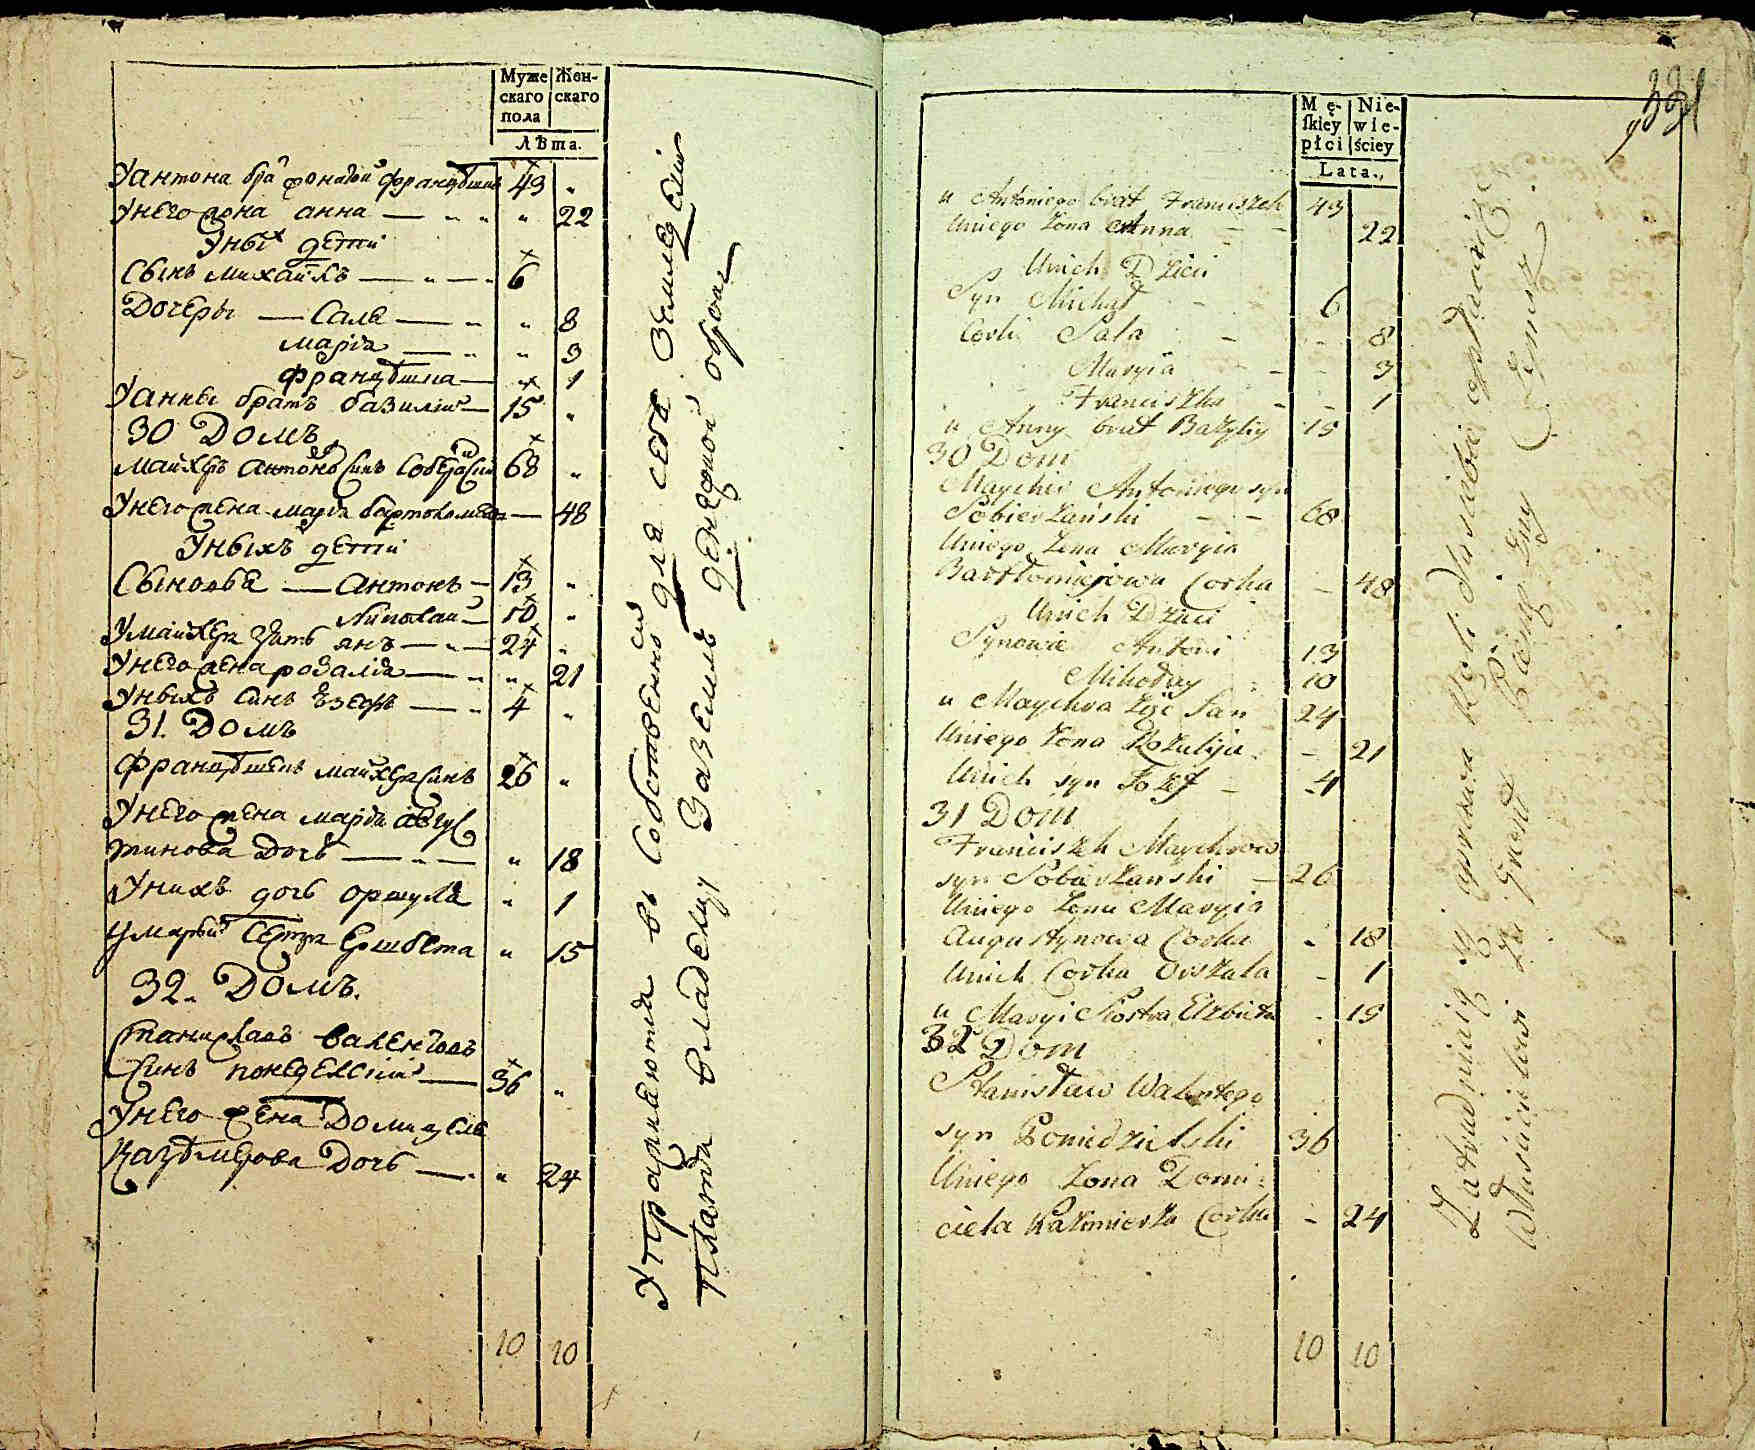 Муже Жен-
скаго скаго
пола
Лѣта.
Уантона бра Францѣшекъ 43 "
Унего жона анна — " " " 22
Уныхъ дети
Сынъ михайлъ — " — " 6
Дочеры — Саля — " " 8
маріа — " " 3
Францѣшка — " 1
Уанны братъ базилій — 15 "
30 Домъ
майхеръ антоновъ синъ 68 "
Унего жена маріа бартоломева — 48
Уныхъ дети
Сыновья — антонъ — 13 "
Николай — 10 "
Умайхера зять янъ — " — 24 "
Унего жена розаліа — " " 21
Уныхъ синъ — " 4 "
31. Домъ
Францѣшекъ майхера синъ 26 "
Унего жена маріа авгус
тинова дочь — " — " 18
Унихъ дочь оршуля " 1
Умарыи сестра " 15
32. Домъ.
Станиславъ
синъ понедельскій — 36 "
Унего жена Домицеля
Казѣмерова Дочь — " " 24
10 10
Упражняются въ собственно для себя земледелии
Платя владелцу заземлю денежной оброк
391
Mę- Nie-
skiey wie-
płci ściey
Lata.
u Antoniego brat Franciszek 43
Uniego Żona Anna — — 22
Unich Dzieci
Syn Michał - 6
Corki Sala - - 8
Maryia - - 3
Franciszka - - 1
u Anny brat Bazyliy 15
30 Dom
Maycher Antoniego syn
Sobierżański — — 68
Uniego Żona Maryia
Bartłomiejowa Corka — 48
Unich Dzieci
Synowie Antoni 13
Mikołay 10
u Maychra Zięć Jan 24
Uniego Żona Rozalija - — 21
Unich syn Jozef — 4
31 Dom
Franciszek Maychrow
syn Sobierżanski — 26
Uniego Żona Maryia
Augustynowa Corka - 18
Unich Corka Orszula - 1
u Maryi Siostra Elzbieta - 15
32 Dom
Stanisław Walentego
syn Poniedzielski 36
Uniego Żona Domi-
cela Kazimierza Corka — 24
10 10
Zatrudniaią się uprawą Roli dla siebie opłacaiąc
Właścicielowi za Grunt Pienięzny Czynsz